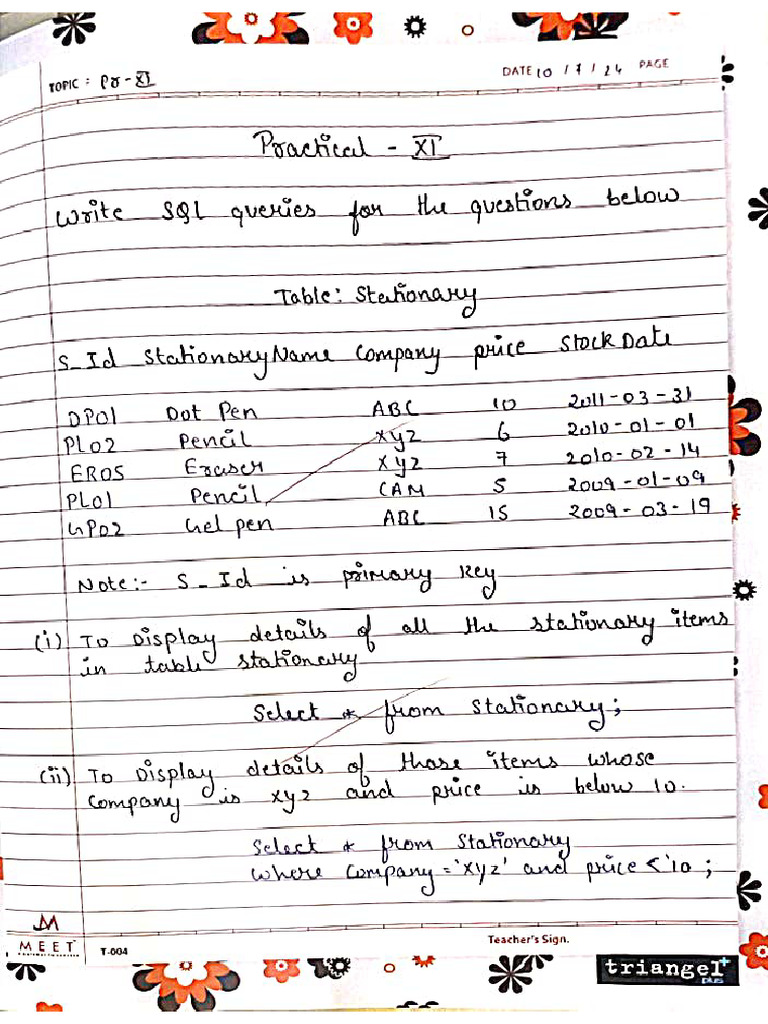 TOPIC : Pr-XI
DATE 10 / 7 / 24 PAGE
Practical - XI
Write SQL queries for the questions below
Table: Stationary
S_Id StationaryName Company price StockDate
DP01 Dot Pen ABC 10 2011-03-31
PL02 Pencil xyz 6 2010-01-01
ER05 Eraser xyz 7 2010-02-14
PL01 Pencil CAM 5 2009-01-09
GP02 Gel pen ABC 15 2009-03-19
Note:- S_Id is primary key
(i) To Display details of all the stationary items
in table stationary
Select * from Stationary;
(ii) To Display details of those items whose
Company is xyz and price is below 10.
Select * from Stationary
where Company='xyz' and price < 10;
M
MEET T-004
Teacher's Sign.
triangel+
plus